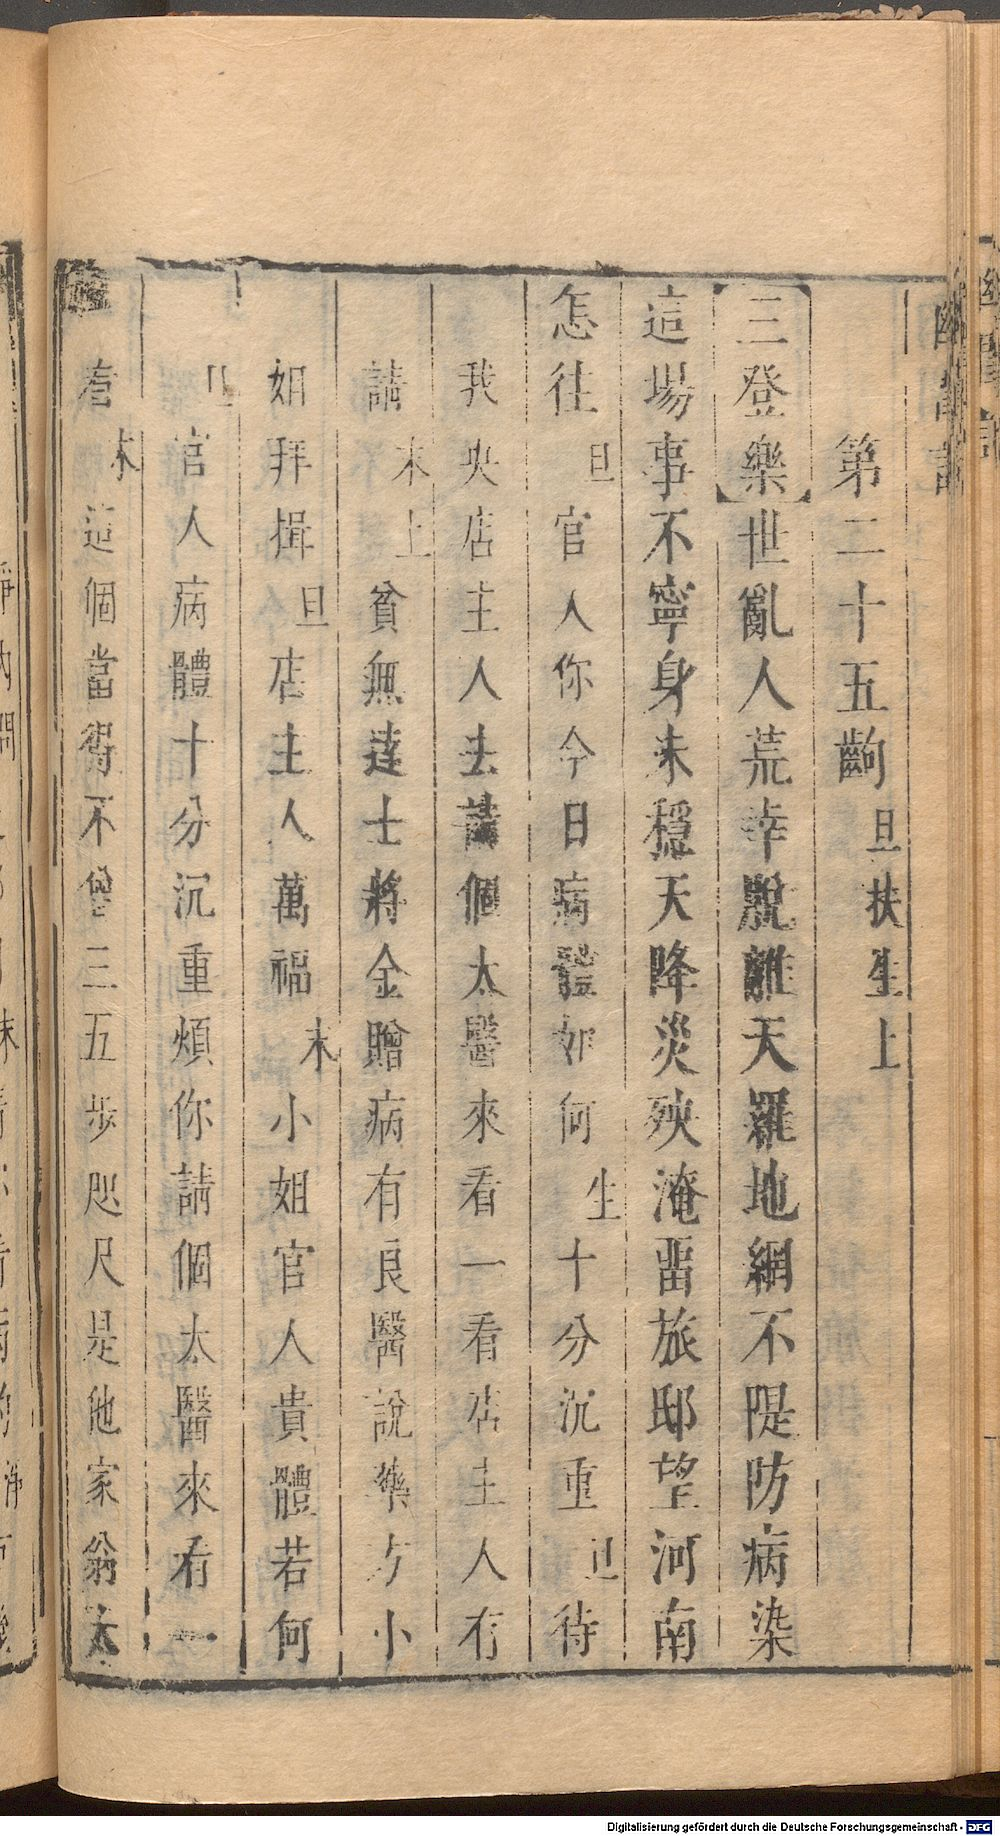 第二十五齣 旦扶生上
【三登樂】世亂人荒幸脫離天羅地網不隄防病染
這場事不寧身未穩天降災殃淹畱旅邸望河南
怎往 旦 官人你今日病體如何 生 十分沉重 旦 待
我央店主人去請個太醫來看一看店主人有
請 末上 貧無達士將金贈病有良醫說藥方小
姐拜揖 旦 店主人萬福 末 小姐官人貴體若何
旦 官人病體十分沉重煩你請個太醫來看一
看 末 這個當得不勞三五步咫尺是他家翁太
Digitalisierung gefördert durch die Deutsche Forschungsgemeinschaft - DFG